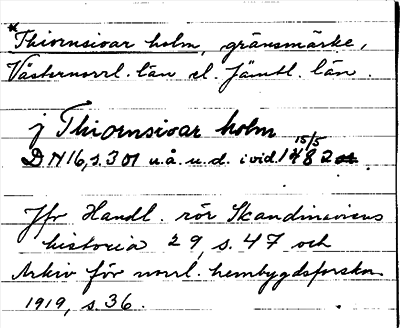 *Thiornsioar holm, gränsmärke,
Västernorrl. län el. Jämtl. län.
j Thiornsioar holm
DN 16, s. 301 u.å. u.d. i vid. 15/5 1482
Jfr Handl. rör Skandinaviens
historia 29, s. 47 och
Arkiv för norrl. hembygdsforskn
1919, s. 36.